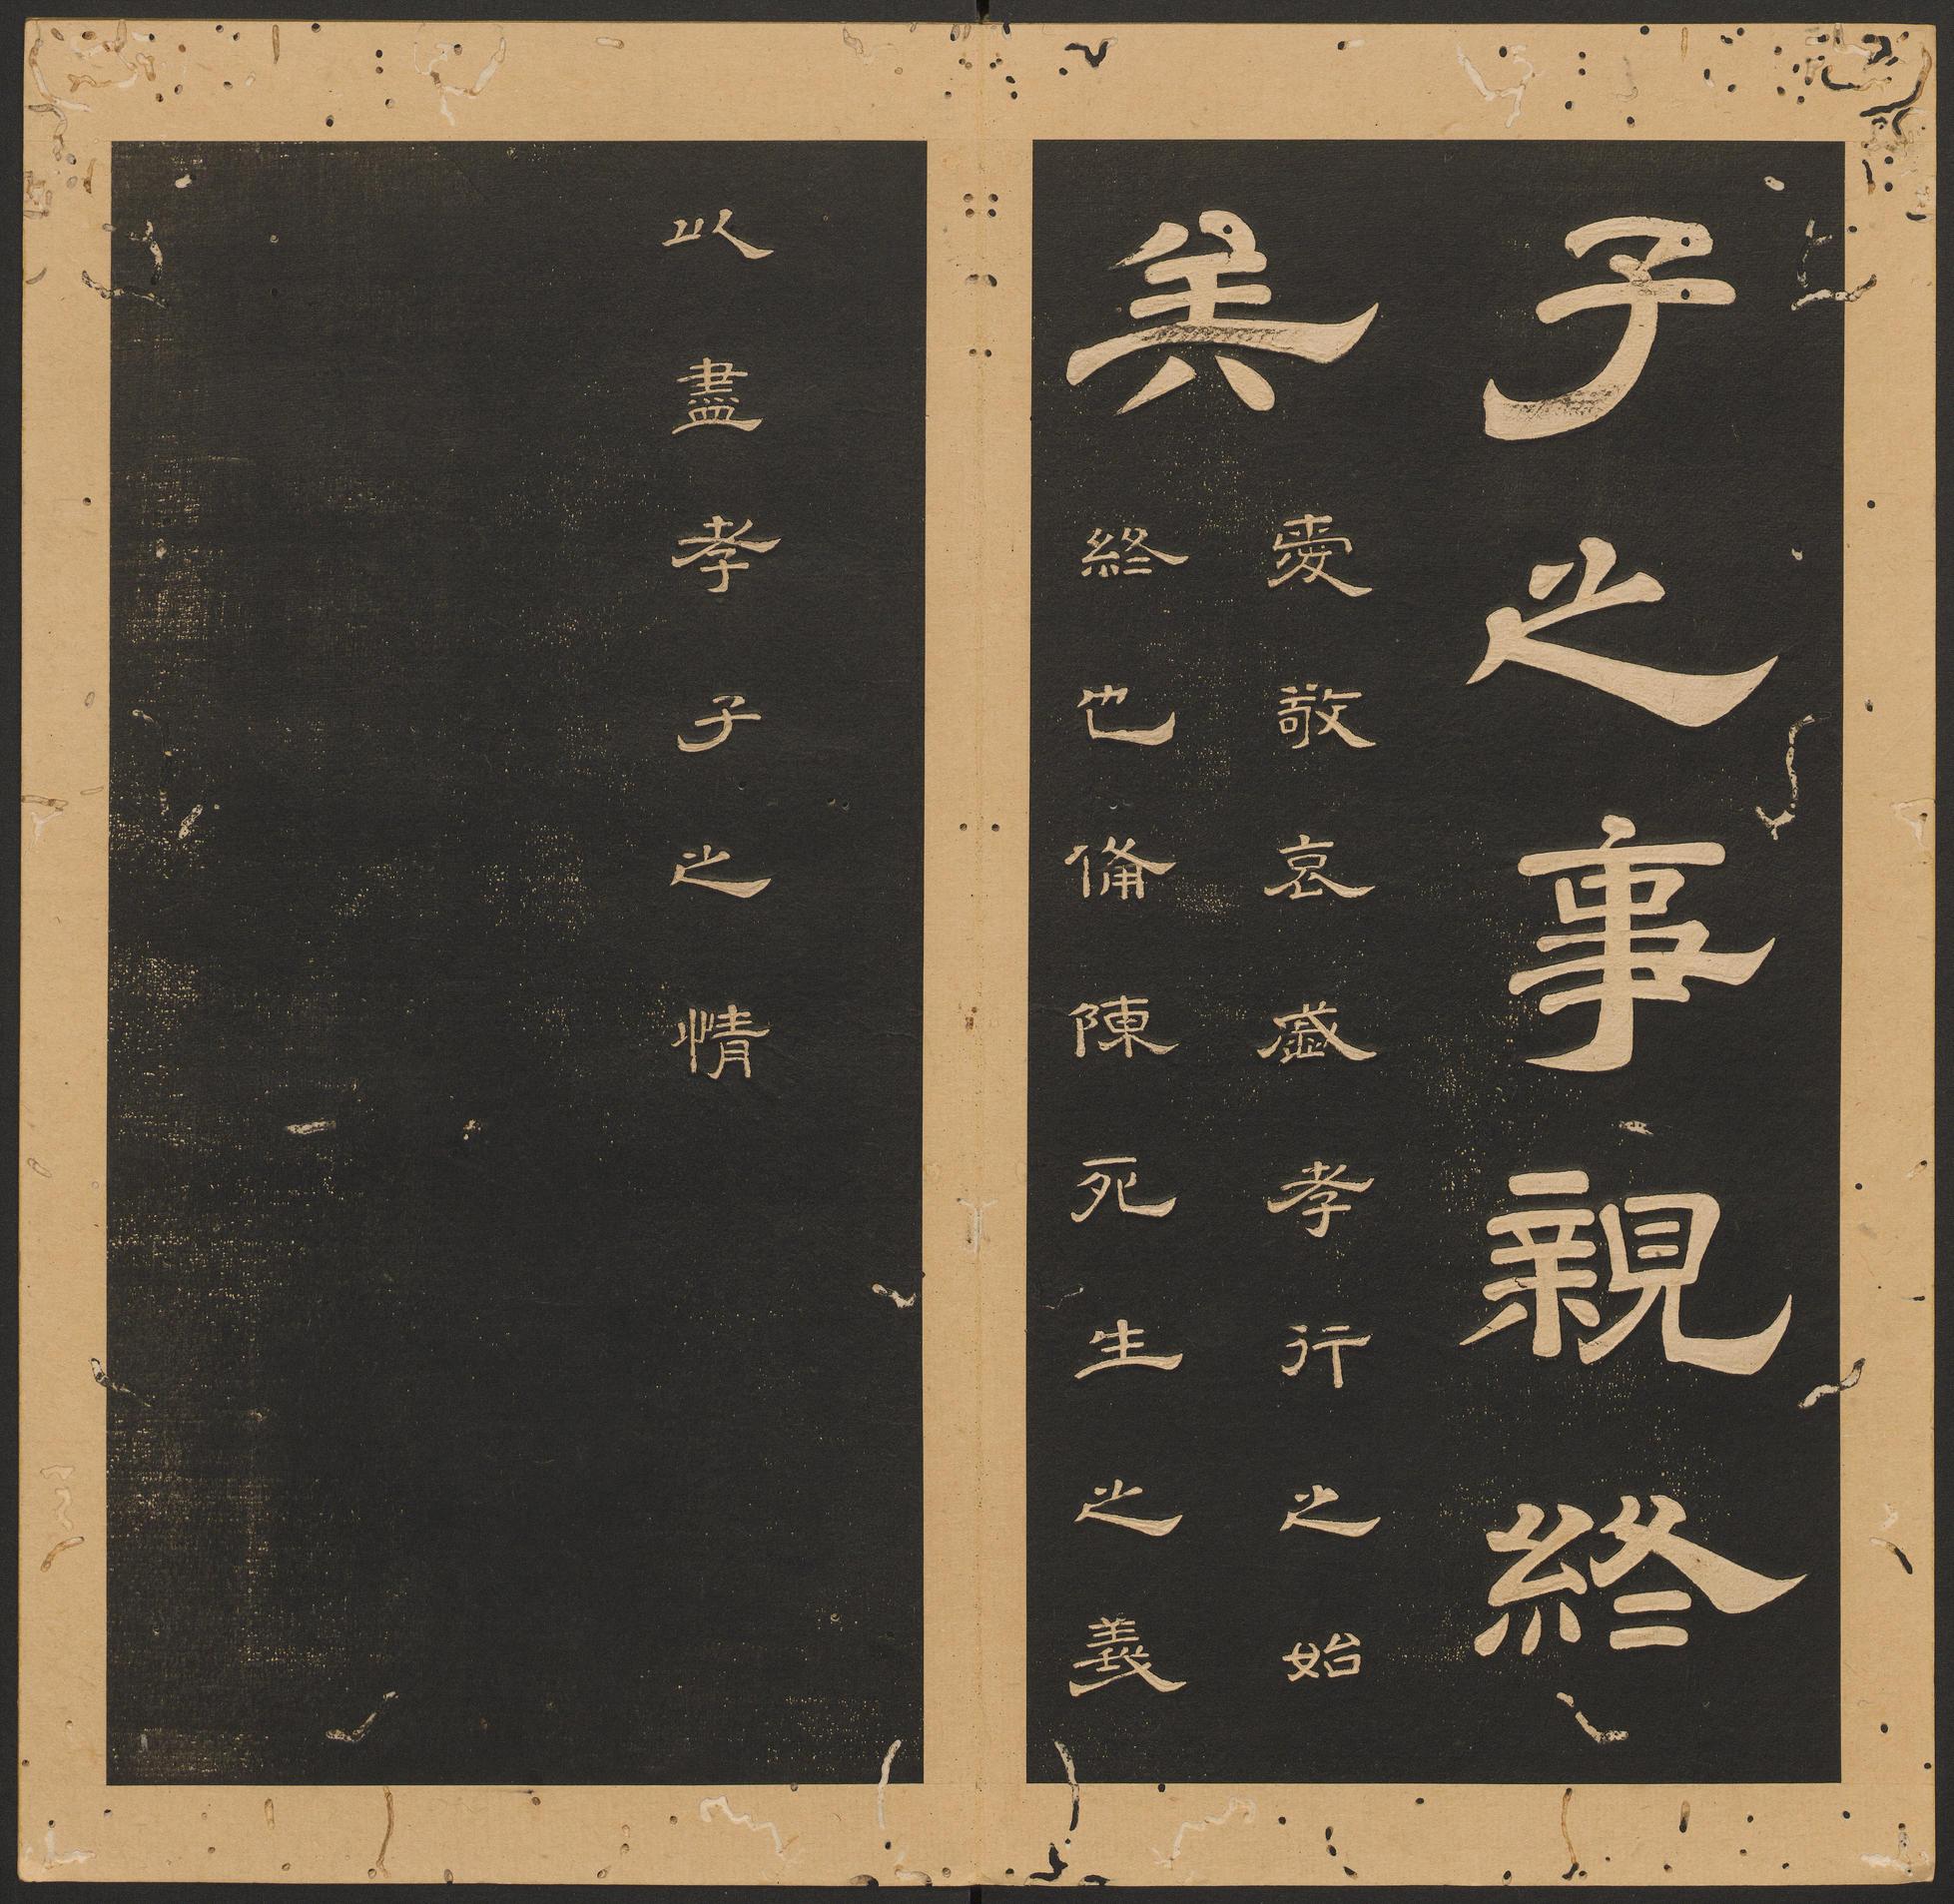 子之事親終
矣
愛敬哀慼孝行之始
終也備陳死生之義
以盡孝子之情